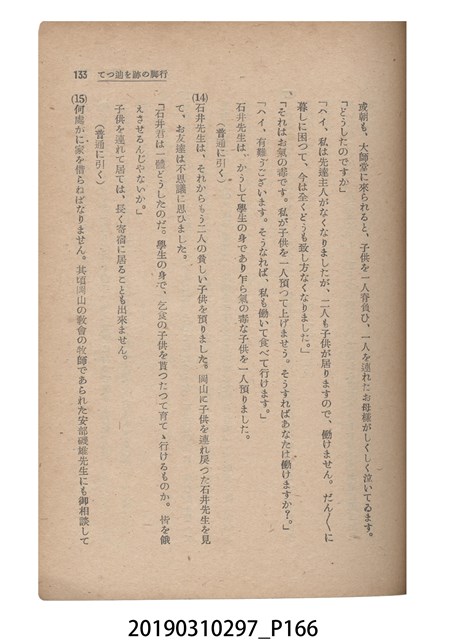 行脚の跡を辿つて 133
或朝も、大師堂に来られると、子供を一人脊負ひ、一人を連れたお母樣がしくしく泣いてゐます。
『どうしたのですか』
『ハイ、私は先達主人がなくなりましたが、二人も子供が居りますので、働けません。だん〱に
暮しに困つて、今は全くどうも致し方なくなりました。』
『それはお氣の毒です。私が子供を一人預つて上げませう。そうすればあなたは働けますか？。』
『ハイ、有難うございます。そうなれば、私も働いて食べて行けます。』
石井先生は、かうして學生の身であり乍ら氣の毒な子供を一人預りました。
（普通に引く）
(14)石井先生は、それからもう二人の貧しい子供を預りました。岡山に子供を連れ戻つた石井先生を見
て、お友達は不思議に思ひました。
『石井君は一體どうしたのだ。學生の身で、乞食の子供を貰つたつて育てゝ行けるものか。皆を餓
えさせるんじやないか。』
子供を連れて居ては、長く寄宿に居ることも出來ません。
（普通に引く）
(15)何處かに家を借らねばなりません。其頃岡山の教會の牧師であられた安部磯雄先生にも御相談して
20190310297_P166